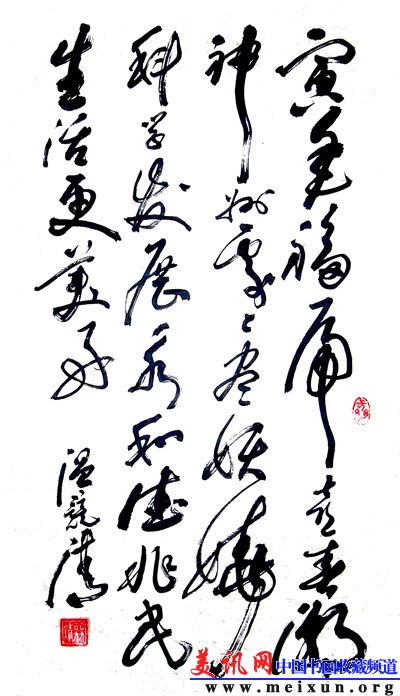 寅年福虎喜春潮
神州处处尽妖娆
科学发展和兆民
生活更美好
温竞
美讯网 中国书画收藏频道
www.meixun.org